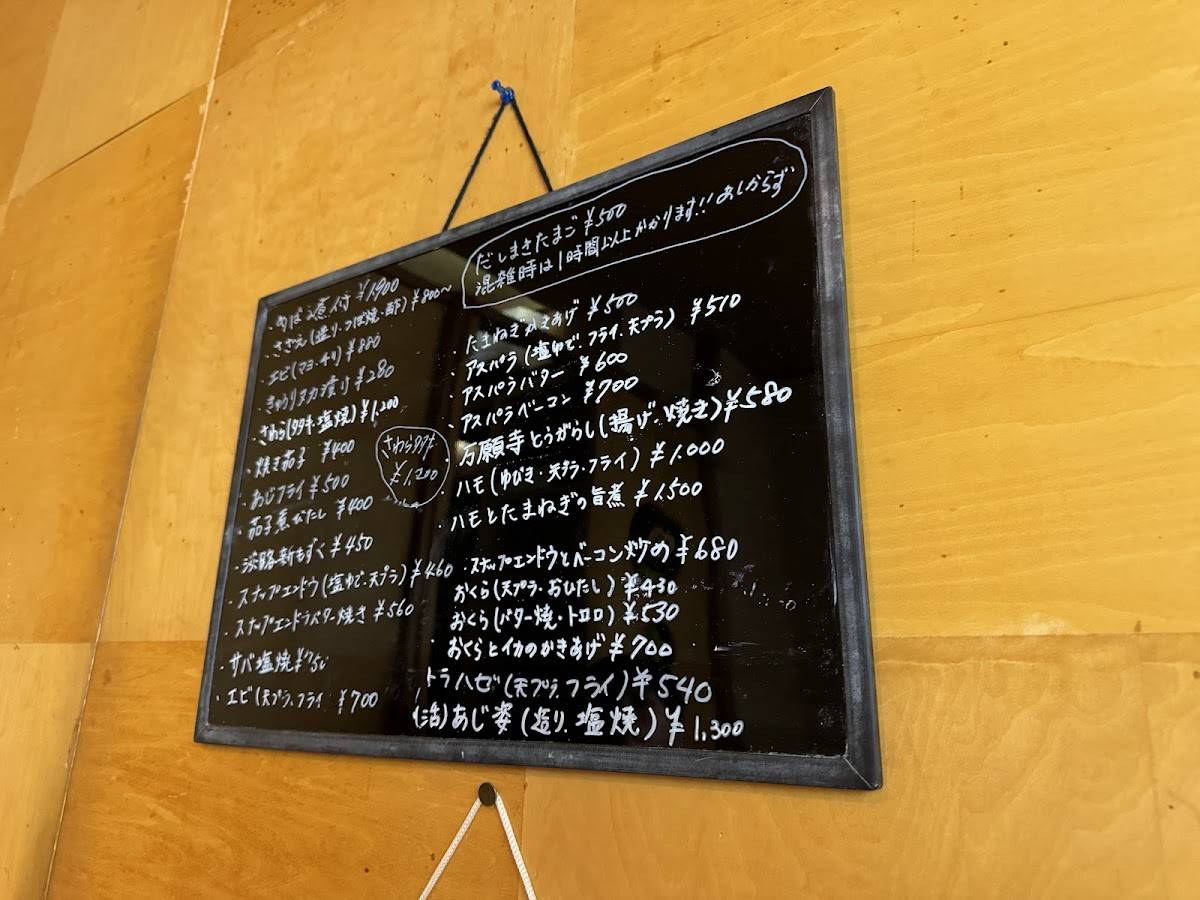 だしまきたまご ¥500
混雑時は1時間以上かかります!! あしからず
・めばる煮付 ¥1900
・さざえ(造り・つぼ焼・酢) ¥800〜
・エビ(マヨ・チリ) ¥880
・きゅうりヌカ漬け ¥280
・さわら(タタキ・塩焼) ¥1,200
・焼き茄子 ¥400
・あじフライ ¥500
・茄子煮びたし ¥400
・淡路新もずく ¥450
・スナップエンドウ(塩ゆで・天プラ) ¥460
・スナップエンドウバター焼き ¥560
・サバ塩焼 ¥750
・エビ(天プラ、フライ ¥700
さわらタタキ
¥1,200
・たまねぎかきあげ ¥500
・アスパラ(塩ゆで、フライ、天プラ) ¥510
・アスパラバター ¥600
・アスパラベーコン ¥700
・万願寺とうがらし(揚げ・焼き) ¥580
・ハモ(ゆびき・天プラ・フライ) ¥1,000
・ハモとたまねぎの旨煮 ¥1,500
・スナップエンドウとベーコン炒め ¥680
おくら(天プラ・おひたし) ¥430
・おくら(バター焼・トロロ) ¥530
・おくらとイカのかきあげ ¥700
トラハゼ(天プラ、フライ) ¥540
(活)あじ姿(造り、塩焼) ¥1,300